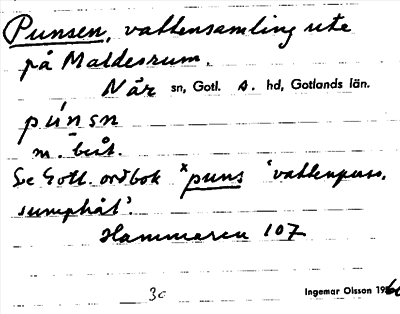 Punsen, vattensamling ute
på Maldesrum.
När sn, Gotl. A. hd, Gotlands län.
pùnsn
m. best.
Se Gotl. ordbok ×puns 'vattenpuss,
sumphåt'.
Hammaren 107
30
Ingemar Olsson 1960